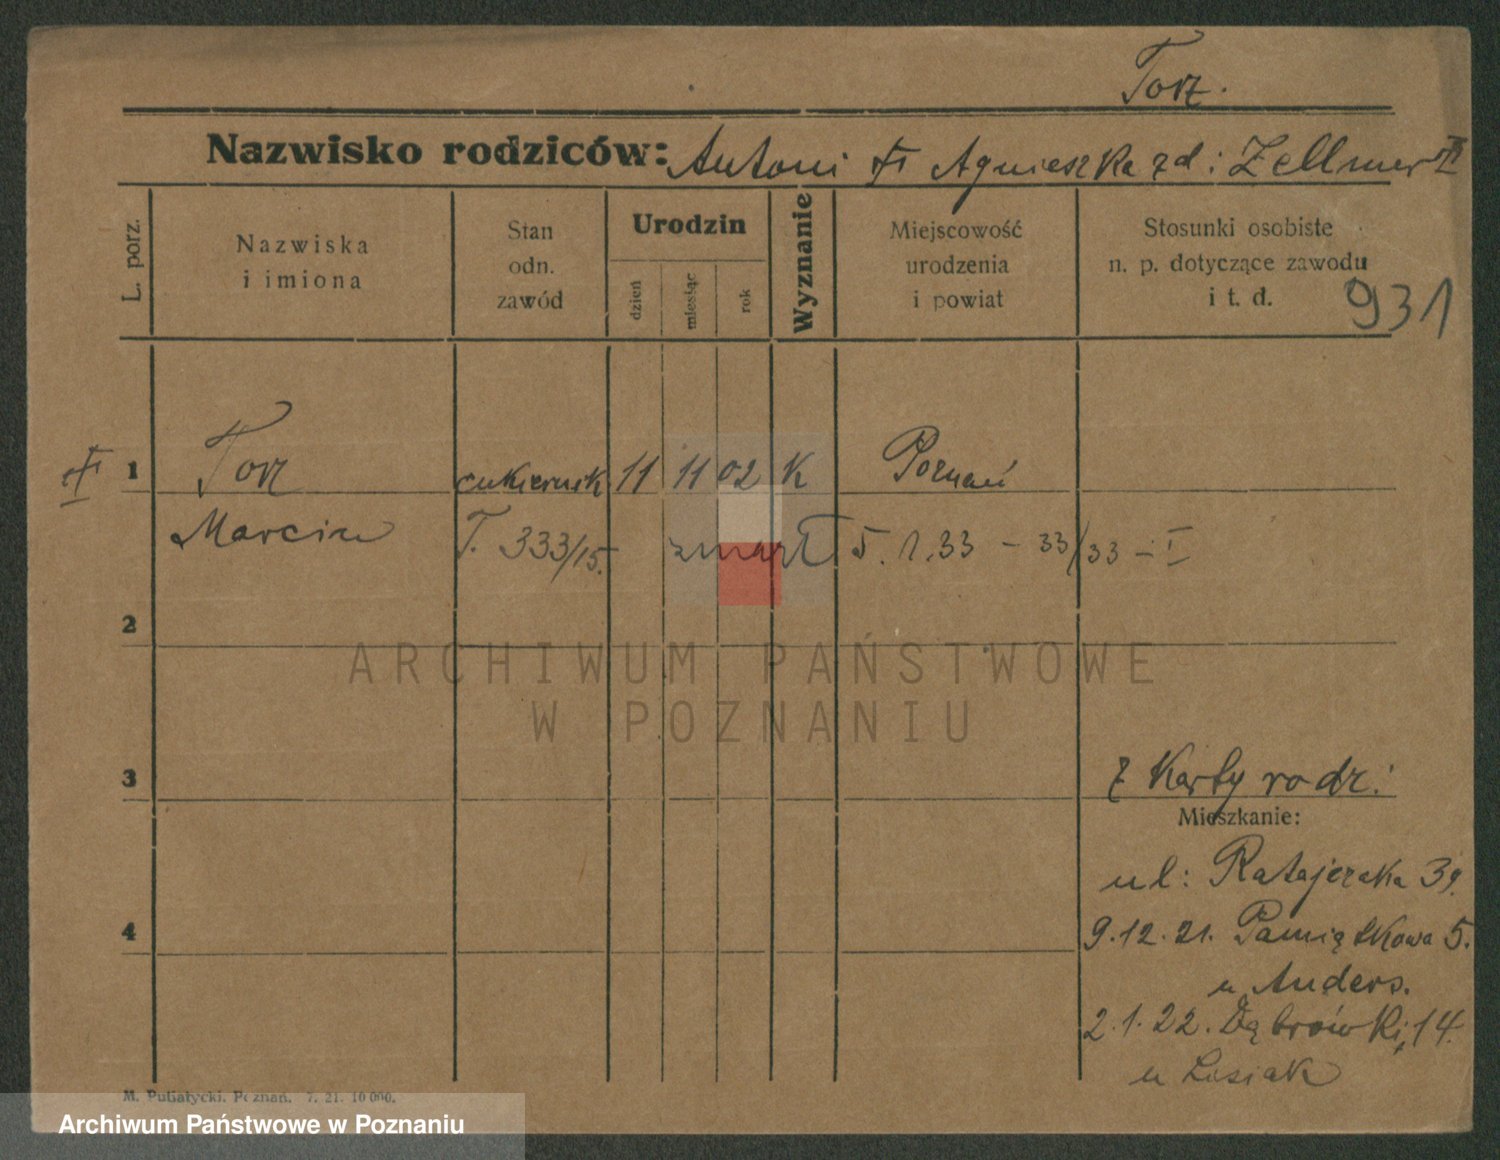 Torz.
Nazwisko rodziców: Antoni Agnieszka zd: Zellmer
L. porz.
Nazwiska
i imiona
Stan
odn.
zawód
Urodzin
dzień
miesiąc
rok
Wyznanie
Miejscowość
urodzenia
i powiat
Stosunki osobiste
n. p. dotyczące zawodu
i t. d.
931
1 Torz cukiernik 11 11 02 K Poznań
Marcin T. 333/15. zmarł 5.1.33 – 33/33 – I
2
ARCHIWUM PAŃSTWOWE
W POZNANIU
3 z Karty rodz:
Mieszkanie:
ul: Ratajczaka 39.
4 9.12.21. Pamiątkowa 5.
u Anders.
2.1.22. Dąbrówki 14.
u Lisiak
M. Putiatycki. Poznań. 7. 21. 10 000.
Archiwum Państwowe w Poznaniu